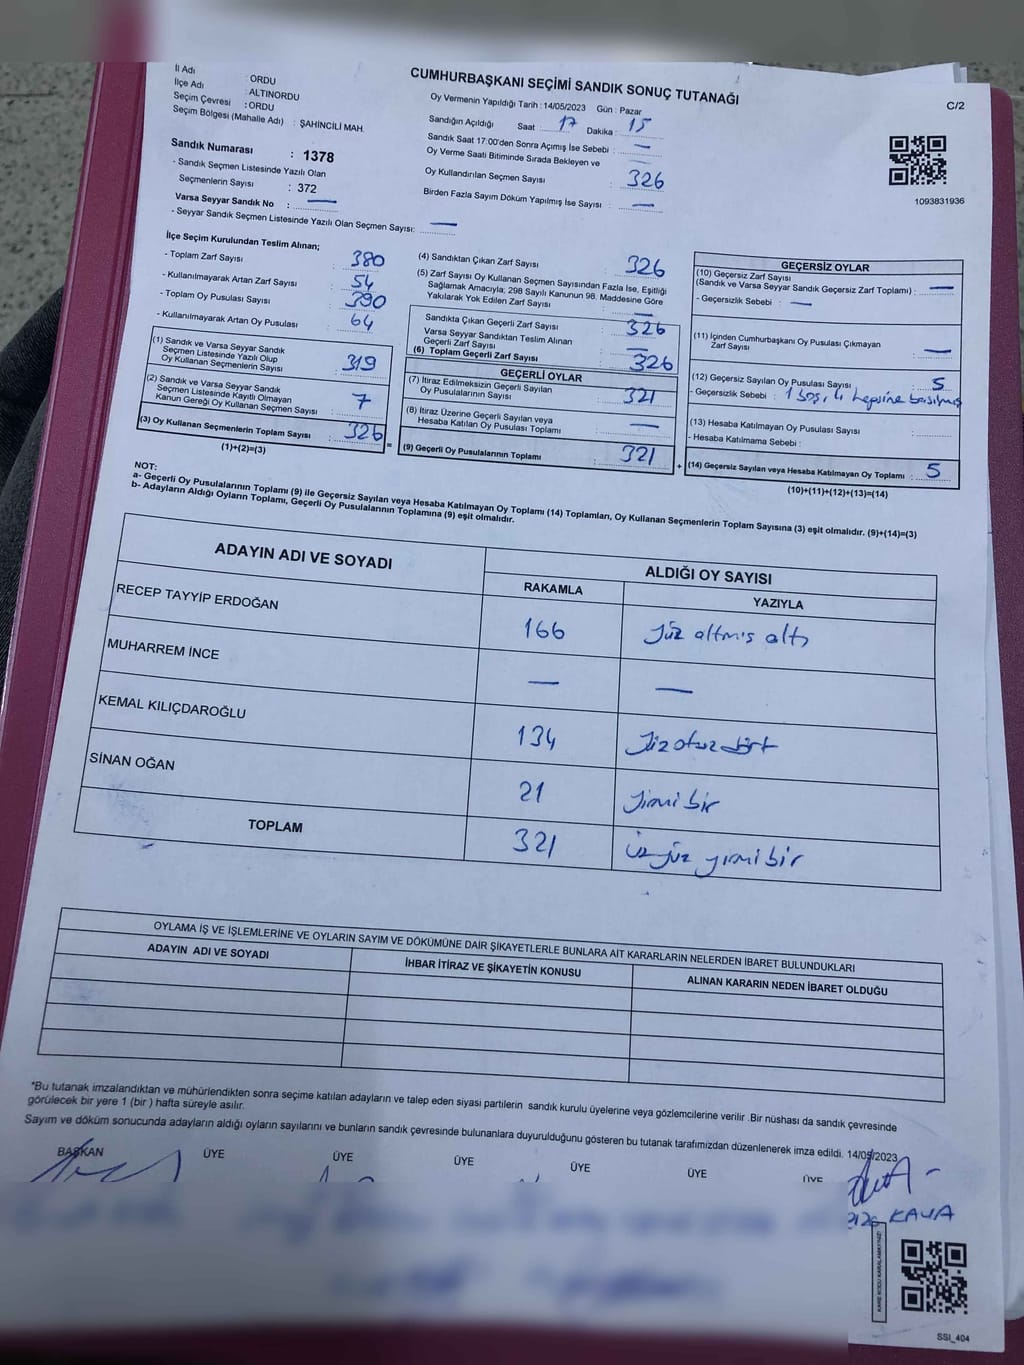 CUMHURBAŞKANI SEÇİMİ SANDIK SONUÇ TUTANAĞI
C/2
İl Adı : ORDU
İlçe Adı : ALTINORDU
Seçim Çevresi : ORDU
Seçim Bölgesi (Mahalle Adı) : ŞAHİNCİLİ MAH.
Sandık Numarası : 1378
- Sandık Seçmen Listesinde Yazılı Olan
Seçmenlerin Sayısı : 372
Varsa Seyyar Sandık No : —
- Seyyar Sandık Seçmen Listesinde Yazılı Olan Seçmen Sayısı: —
Oy Vermenin Yapıldığı Tarih : 14/05/2023 Gün : Pazar
Sandığın Açıldığı Saat 17 Dakika : 15
Sandık Saat 17:00'den Sonra Açımış İse Sebebi : —
Oy Verme Saati Bitiminde Sırada Bekleyen ve —
Oy Kullandırılan Seçmen Sayısı : 326
Birden Fazla Sayım Döküm Yapılmış İse Sayısı : —
1093831936
İlçe Seçim Kurulundan Teslim Alınan;
- Toplam Zarf Sayısı : 380
- Kullanılmayarak Artan Zarf Sayısı : 54
- Toplam Oy Pusulası Sayısı : 390
- Kullanılmayarak Artan Oy Pusulası : 64
(1) Sandık ve Varsa Seyyar Sandık
Seçmen Listesinde Yazılı Olup
Oy Kullanan Seçmenlerin Sayısı : 319
(2) Sandık ve Varsa Seyyar Sandık
Seçmen Listesinde Kayıtlı Olmayan
Kanun Gereği Oy Kullanan Seçmen Sayısı : 7
(3) Oy Kullanan Seçmenlerin Toplam Sayısı : 326
(1)+(2)=(3)
(4) Sandıktan Çıkan Zarf Sayısı : 326
(5) Zarf Sayısı Oy Kullanan Seçmen Sayısından Fazla İse, Eşitliği
Sağlamak Amacıyla; 298 Sayılı Kanunun 98. Maddesine Göre
Yakılarak Yok Edilen Zarf Sayısı : —
Sandıkta Çıkan Geçerli Zarf Sayısı : 326
Varsa Seyyar Sandıktan Teslim Alınan
Geçerli Zarf Sayısı : —
(6) Toplam Geçerli Zarf Sayısı : 326
GEÇERLİ OYLAR
(7) İtiraz Edilmeksizin Geçerli Sayılan
Oy Pusulalarının Sayısı : 321
(8) İtiraz Üzerine Geçerli Sayılan veya
Hesaba Katılan Oy Pusulası Toplamı : —
(9) Geçerli Oy Pusulalarının Toplamı : 321
GEÇERSİZ OYLAR
(10) Geçersiz Zarf Sayısı
(Sandık ve Varsa Seyyar Sandık Geçersiz Zarf Toplamı) : —
- Geçersizlik Sebebi : —
(11) İçinden Cumhurbaşkanı Oy Pusulası Çıkmayan
Zarf Sayısı : —
(12) Geçersiz Sayılan Oy Pusulası Sayısı : 5
- Geçersizlik Sebebi : 1 boş, 4 hepsine basılmış
(13) Hesaba Katılmayan Oy Pusulası Sayısı :
- Hesaba Katılmama Sebebi :
(14) Geçersiz Sayılan veya Hesaba Katılmayan Oy Toplamı : 5
(10)+(11)+(12)+(13)=(14)
NOT:
a- Geçerli Oy Pusulalarının Toplamı (9) ile Geçersiz Sayılan veya Hesaba Katılmayan Oy Toplamı (14) Toplamları, Oy Kullanan Seçmenlerin Toplam Sayısına (3) eşit olmalıdır. (9)+(14)=(3)
b- Adayların Aldığı Oyların Toplamı, Geçerli Oy Pusulalarının Toplamına (9) eşit olmalıdır.
ADAYIN ADI VE SOYADI ALDIĞI OY SAYISI
RAKAMLA YAZIYLA
RECEP TAYYİP ERDOĞAN 166 Yüz altmış altı
MUHARREM İNCE — —
KEMAL KILIÇDAROĞLU 134 Yüz otuz dört
SİNAN OĞAN 21 Yirmi bir
TOPLAM 321 Üçyüz yirmi bir
OYLAMA İŞ VE İŞLEMLERİNE VE OYLARIN SAYIM VE DÖKÜMÜNE DAİR ŞİKAYETLERLE BUNLARA AİT KARARLARIN NELERDEN İBARET BULUNDUKLARI
ADAYIN ADI VE SOYADI İHBAR İTİRAZ VE ŞİKAYETİN KONUSU ALINAN KARARIN NEDEN İBARET OLDUĞU
*Bu tutanak imzalandıktan ve mühürlendikten sonra seçime katılan adayların ve talep eden siyasi partilerin sandık kurulu üyelerine veya gözlemcilerine verilir .Bir nüshası da sandık çevresinde
görülecek bir yere 1 (bir ) hafta süreyle asılır.
Sayım ve döküm sonucunda adayların aldığı oyların sayılarını ve bunların sandık çevresinde bulunanlara duyurulduğunu gösteren bu tutanak tarafımızdan düzenlenerek imza edildi. 14/05/2023
BAŞKAN ÜYE ÜYE ÜYE ÜYE ÜYE ÜYE
KAYA
KARE KODU KARALAMAYINIZ!
SSI_404